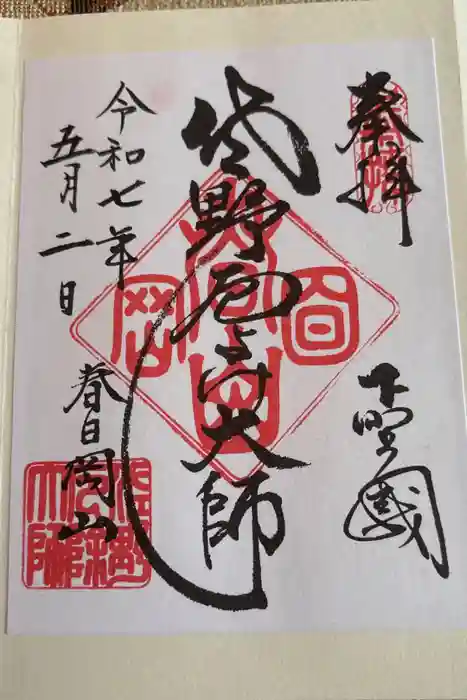 奉拝
下野國
佐野厄よけ大師
令和七年
五月二日
春日岡山
春日岡山